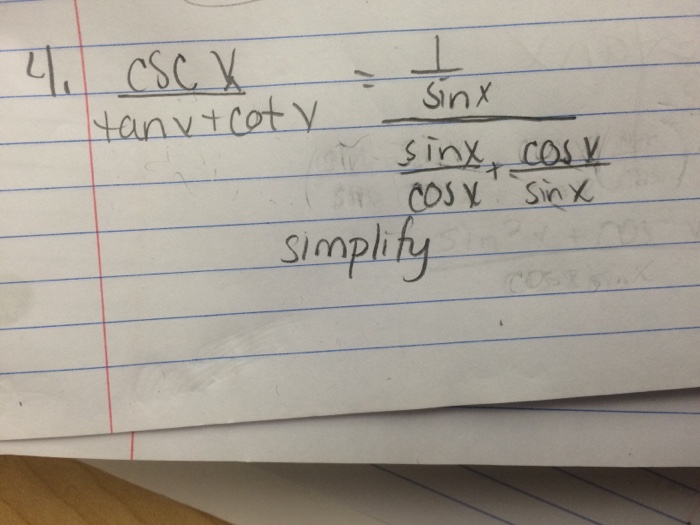 4. csc x / tan x + cot x = 1 / sin x / sin x / cos x + cos x / sin x
simplify